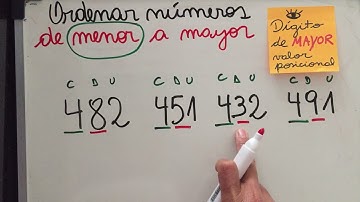 Ordenar números
de menor a mayor
Dígito
de MAYOR
valor
posicional
C D U C D U C D U C D U
482 451 432 491